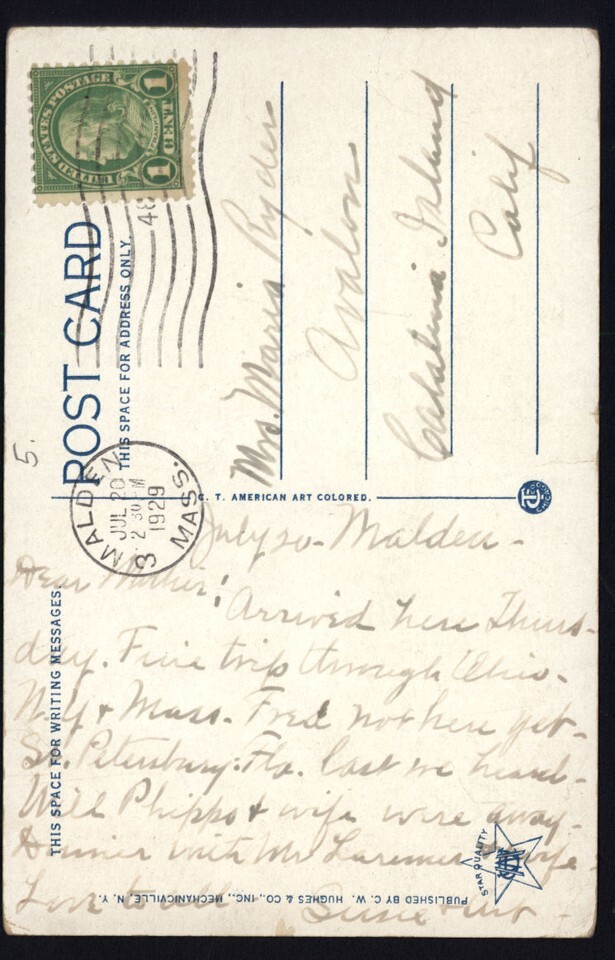 UNITED STATES POSTAGE
1 CENT 1
POST CARD
THIS SPACE FOR ADDRESS ONLY
5.
MALDEN
JUL 20
2 30 PM
1929
3
MASS.
Mrs. Maria Ryder
Avalon
Catalina Island
Calif
C. T. AMERICAN ART COLORED.
THIS SPACE FOR WRITING MESSAGES.
July 20 - Malden -
Dear Mother: Arrived here Thurs-
day. Fine trip through Ohio -
N.Y + Mass. Fred not here yet -
St. Petersburg. Fla. last we heard -
Will Phipps + wife were away -
Dinner with Mr Larimer + wife
Love to all
STAR QUALITY
PUBLISHED BY C. W. HUGHES & CO., INC., MECHANICVILLE, N. Y.